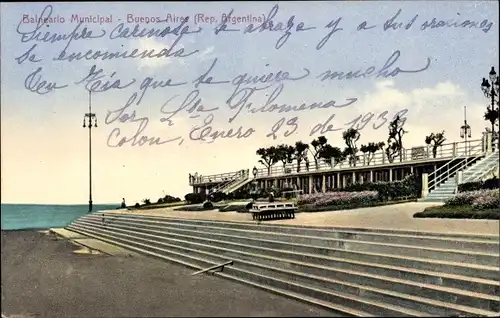 Balneario Municipal - Buenos Aires (Rep. Argentina)
Siempre cariñosa te abraza y a tus oraciones
Se encomienda
tu tia que te quiere mucho
Sor Lta Filomena
Colon, Enero 23 de 1933